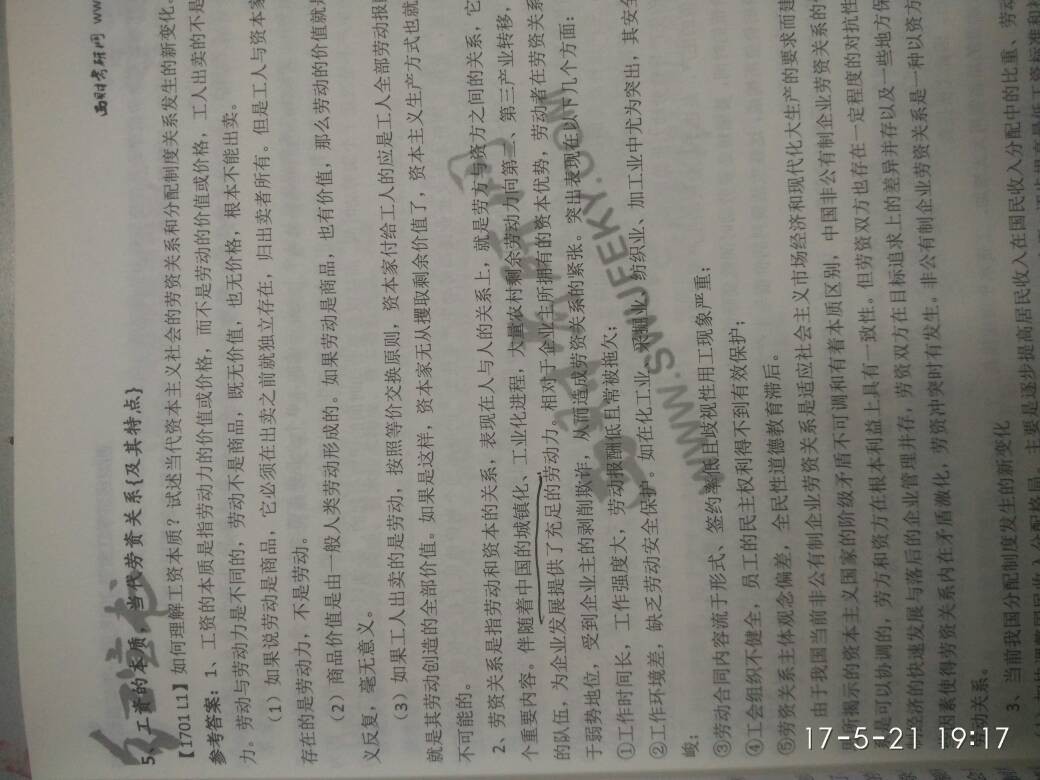 西财考研网 ww
红宝书
5、工资的本质，当代劳资关系{及其特点}
【1701 L1】如何理解工资本质？试述当代资本主义社会的劳资关系和分配制度关系发生的新变化。
参考答案：1、工资的本质是指劳动力的价值或价格，而不是劳动的价值或价格，工人出卖的不是
力。劳动与劳动力是不同的，劳动不是商品，既无价值，也无价格，根本不能出卖。
（1）如果说劳动是商品，它必须在出卖之前就独立存在，归出卖者所有。但是工人与资本家
存在的是劳动力，不是劳动。
（2）商品价值是由一般人类劳动形成的。如果劳动是商品，也有价值，那么劳动的价值就是
义反复，毫无意义。
（3）如果工人出卖的是劳动，按照等价交换原则，资本家付给工人的应是工人全部劳动报酬
就是其劳动创造的全部价值。如果是这样，资本家无从攫取剩余价值了，资本主义生产方式也就
不可能的。
2、劳资关系是指劳动和资本的关系，表现在人与人的关系上，就是劳方与资方之间的关系，它
个重要内容。伴随着中国的城镇化、工业化进程，大量农村剩余劳动力向第二、第三产业转移，
的队伍，为企业发展提供了充足的劳动力。相对于企业主所拥有的资本优势，劳动者在劳资关系
于弱势地位，受到企业主的剥削欺诈，从而造成劳资关系的紧张。突出表现在以下几个方面：
①工作时间长，工作强度大，劳动报酬低且常被拖欠；
②工作环境差，缺乏劳动安全保护。如在化工业、采掘业、纺织业、加工业中尤为突出，其安全
峻；
③劳动合同内容流于形式、签约率低且歧视性用工现象严重；
④工会组织不健全，员工的民主权利得不到有效保护；
⑤劳资关系主体观念偏差，全民性道德教育滞后。
由于我国当前非公有制企业劳资关系是适应社会主义市场经济和现代化大生产的要求而建
所揭示的资本主义国家的阶级矛盾不可调和有着本质区别，中国非公有制企业劳资关系的
是可以协调的，劳方和资方在根本利益上具有一致性。但劳资双方也存在一定程度的对抗性
经济的快速发展与落后的企业管理并存，劳资双方在目标追求上的差异并存以及一些地方保
因素使得劳资关系内在矛盾激化，劳资冲突时有发生。非公有制企业劳资关系是一种以资方
动关系。
3、当前我国分配制度发生的新变化
主要是逐步提高居民收入在国民收入分配中的比重、劳动
西财考研网
WWW.SWUFEKY.COM
17-5-21 19:17